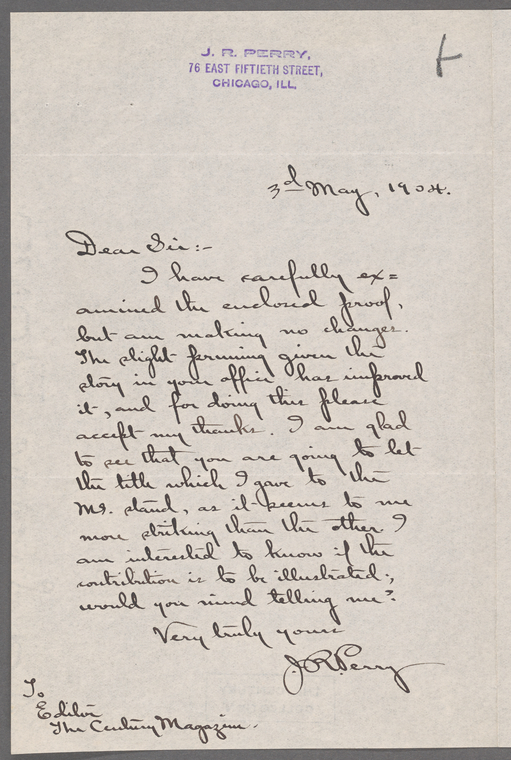 J. R. PERRY,
76 EAST FIFTIETH STREET,
CHICAGO, ILL.
3d May, 1904.
Dear Sir:-
I have carefully ex=
amined the enclosed proof,
but am making no changes.
The slight pruning given the
story in your office has improved
it, and for doing this please
accept my thanks. I am glad
to see that you are going to let
the title which I gave to the
MS. stand, as it seems to me
more striking than the other. I
am interested to know if the
contribution is to be illustrated;
would you mind telling me?
Very truly yours
J. R. Perry
To
Editor
The Century Magazine.